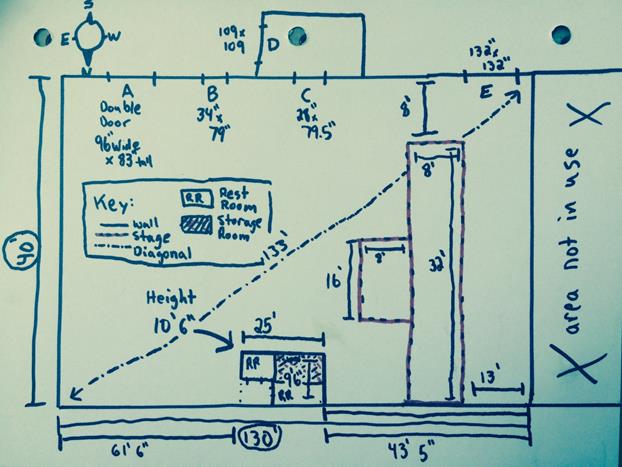 S
E W
N
109x
109
D
132"
x
132"
A
Double
Door
96" wide
x 83" tall
B
34"
x
79"
C
28"
x
79.5"
E
8'
8'
40'
Key:
Wall
Stage
Diagonal
RR
Rest
Room
Storage
Room
133'
32'
8'
16'
Height
10' 6"
25'
RR
96"
RR
13'
X area not in use X
61' 6"
130'
43' 5"